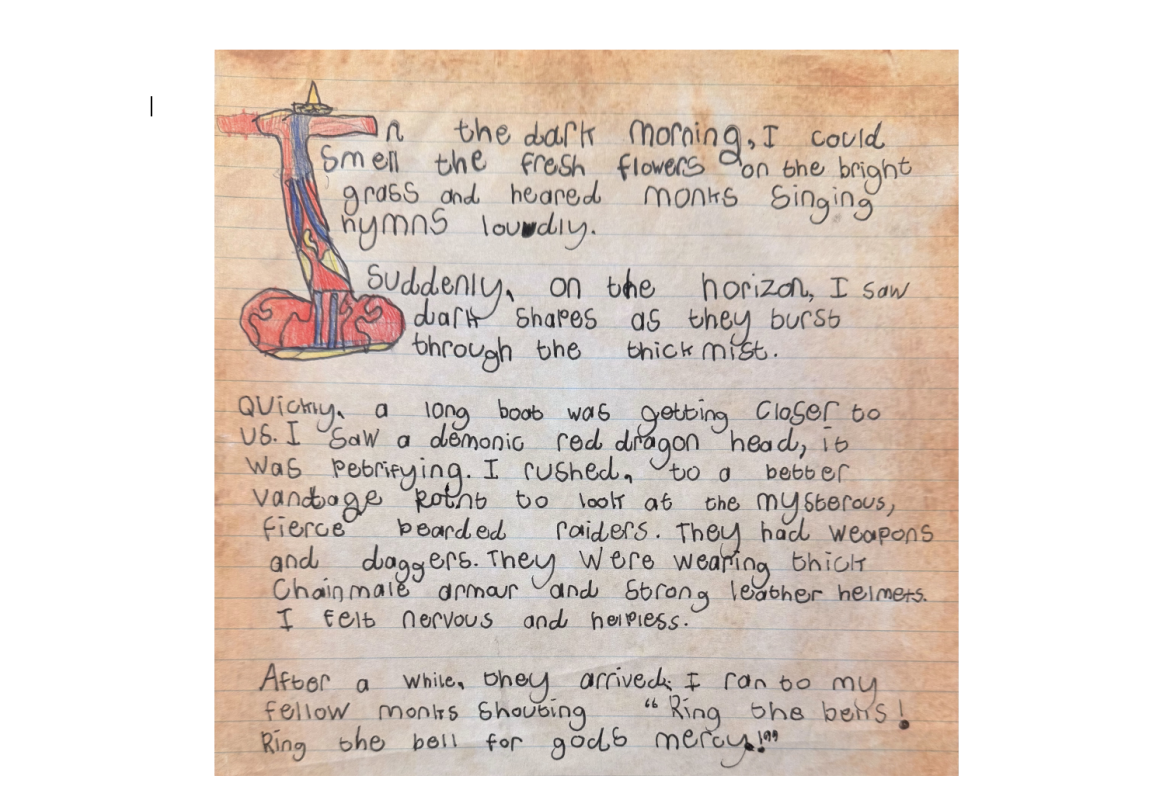 In the dark morning, I could
smell the fresh flowers on the bright
grass and heared monks singing
hymns loudly.
Suddenly, on the horizon, I saw
dark shapes as they burst
through the thick mist.
Quickly, a long boat was getting closer to
us. I saw a demonic red dragon head, it
was petrifying. I rushed, to a better
vantage point to look at the mysterous,
fierce bearded raiders. They had weapons
and daggers. They were wearing thick
chainmale armour and strong leather helmets.
I felt nervous and helpless.
After a while, they arrived; I ran to my
fellow monks shouting “Ring the bells!
Ring the bell for gods mercy!”